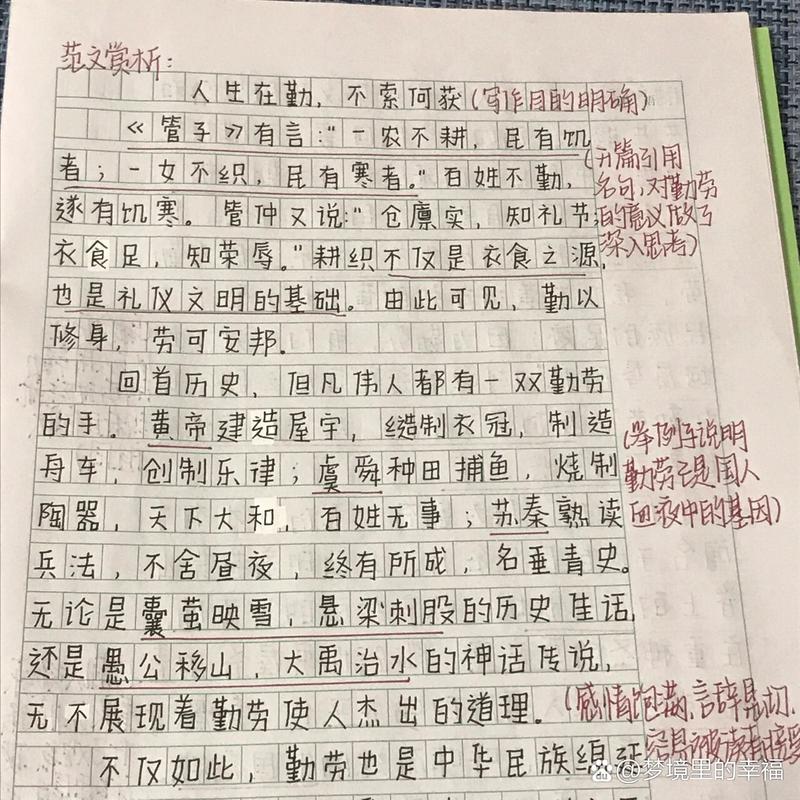 范文赏析：
人生在勤，不索何获（写作目的明确）
《管子》有言：“一农不耕，民有饥
者；一女不织，民有寒者。”百姓不勤，
遂有饥寒。管仲又说：“仓廪实，知礼节；
衣食足，知荣辱。”耕织不仅是衣食之源，
也是礼仪文明的基础。由此可见，勤以
修身，劳可安邦。
（开篇引用
名句，对勤劳
的意义做了
深入思考）
回首历史，但凡伟人都有一双勤劳
的手。黄帝建造屋宇，缝制衣冠，制造
舟车，创制乐律；虞舜种田捕鱼，烧制
陶器，天下大和，百姓无事；苏秦熟读
兵法，不舍昼夜，终有所成，名垂青史。
无论是囊萤映雪，悬梁刺股的历史佳话，
还是愚公移山，大禹治水的神话传说，
无不展现着勤劳使人杰出的道理。
（举例子说明
勤劳已是国人
血液中的基因）
（感情饱满，言辞恳切，
容易被读者接受
不仅如此，勤劳也是中华民族绵延
@梦境里的幸福